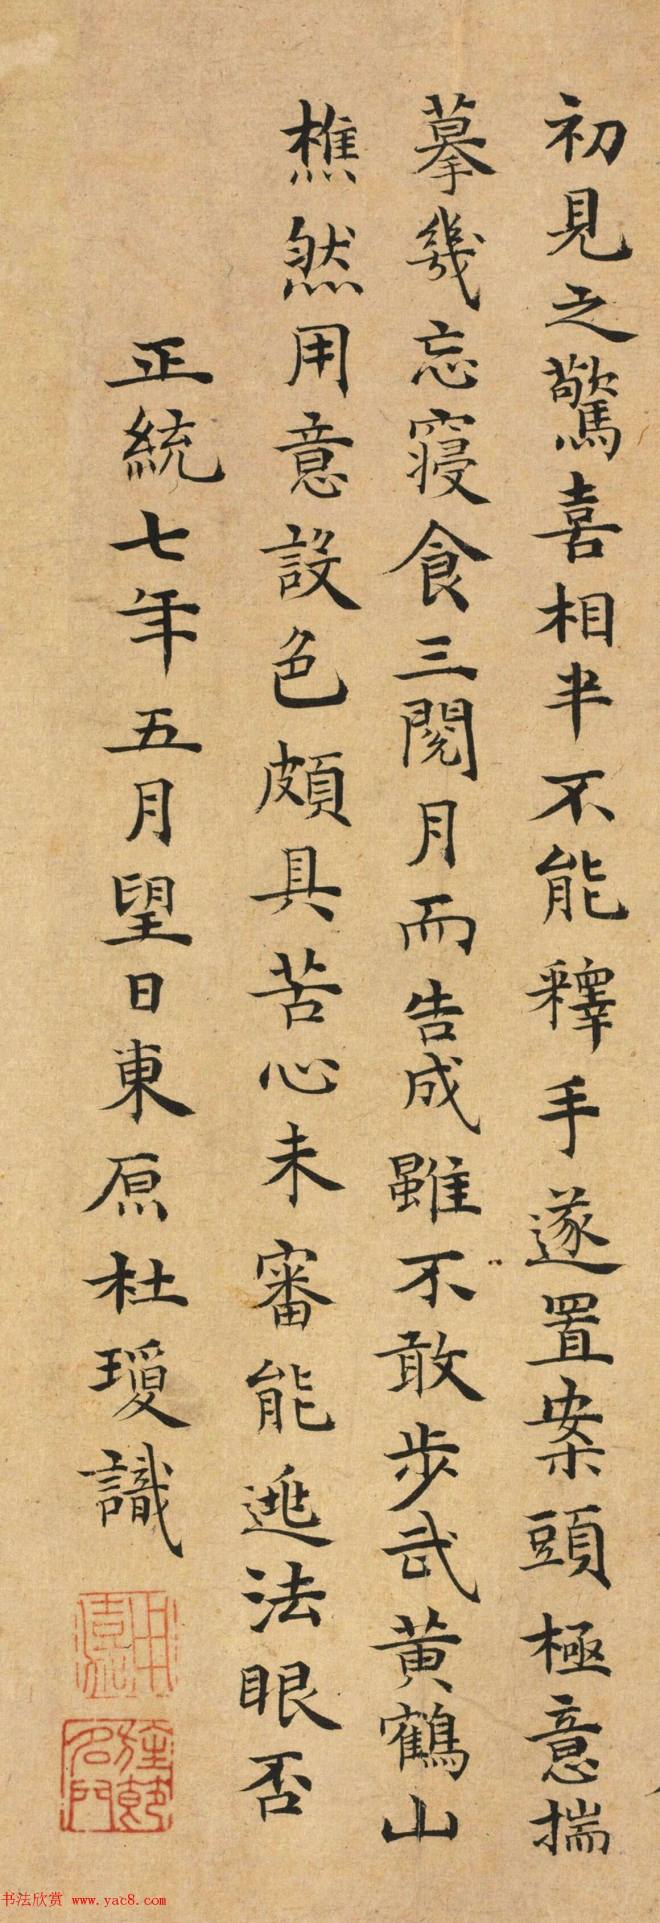 初見之驚喜相半不能釋手遂置案頭極意揣
摹幾忘寢食三閱月而告成雖不敢步武黃鶴山
樵然用意設色頗具苦心未審能逃法眼否
正統七年五月望日東原杜瓊識
书法欣赏 www.yac8.com